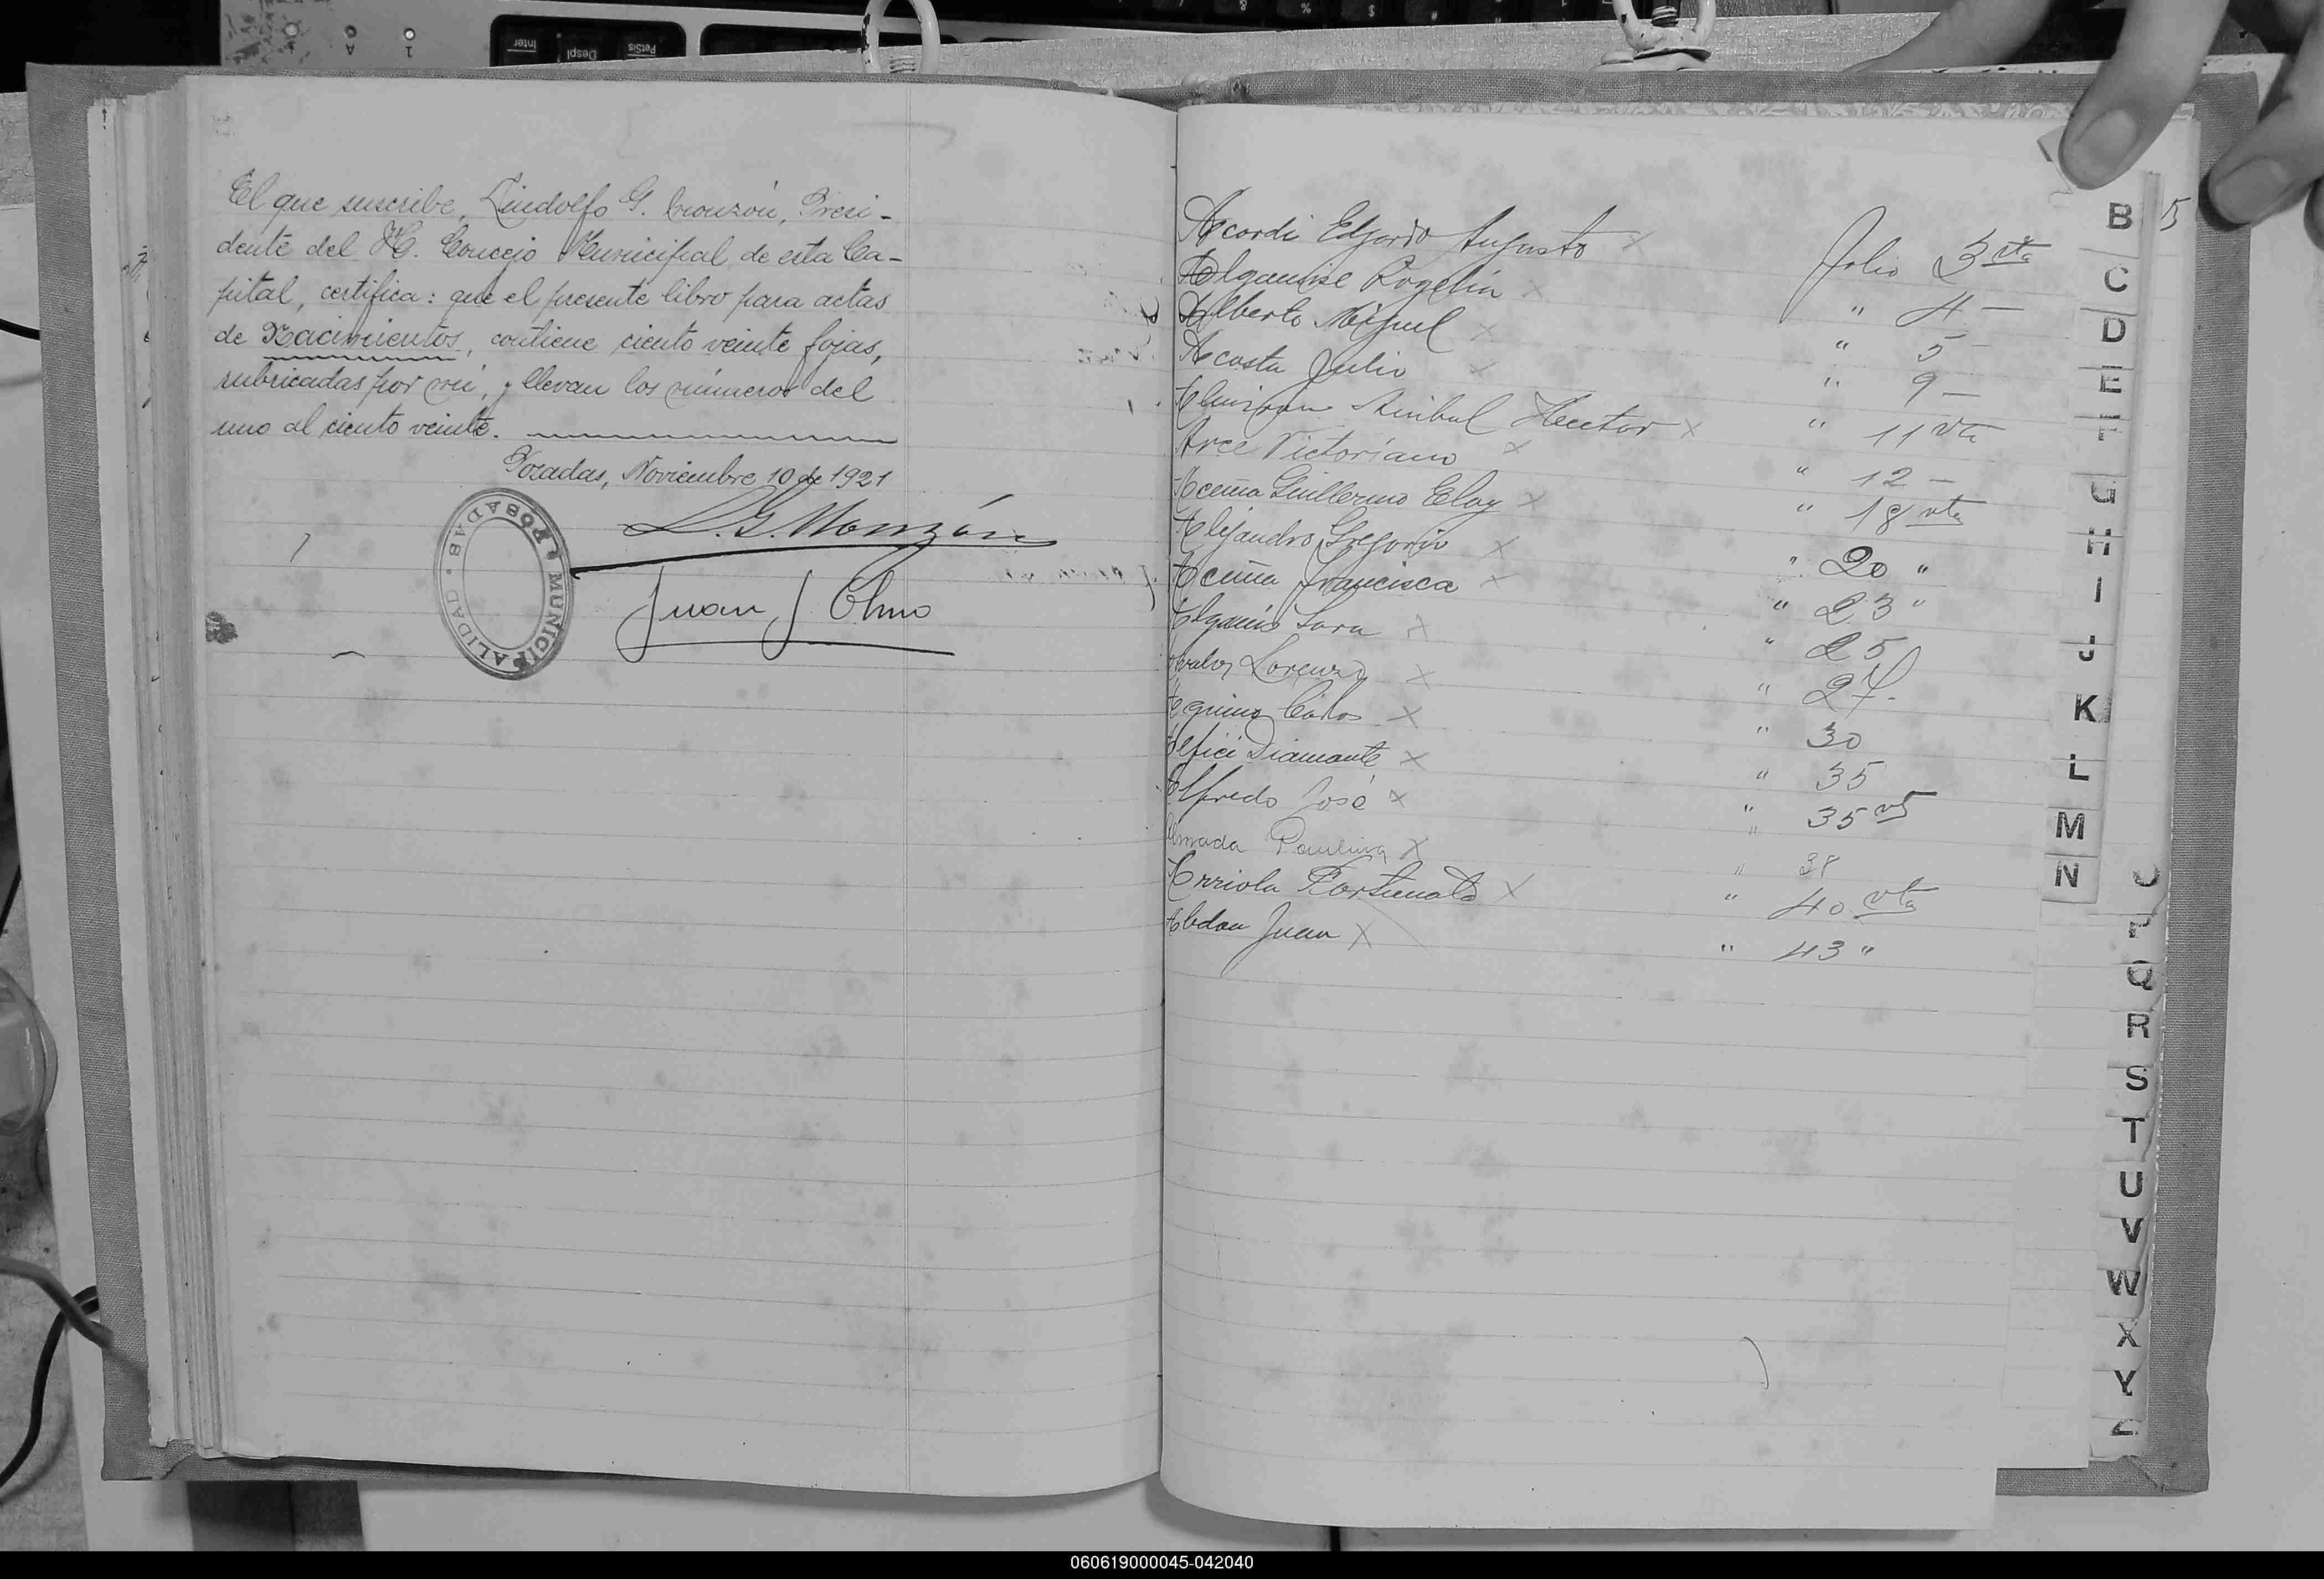 El que suscribe, Lindolfo G. Monzón, Presi-
dente del H. Concejo Municipal de esta Ca-
pital, certifica: que el presente libro para actas
de Nacimientos, contiene ciento veinte fojas,
rubricadas por mí, y llevan los números del
uno al ciento veinte.
Posadas, Noviembre 10 de 1921
L. G. Monzón
MUNICIPALIDAD • POSADAS
Juan J. Olmo
Acardi Edgardo Augusto x Folio 3 vta
Rogelia x " 4 —
Alberto Miguel x " 5 —
Acosta Julio x " 9 —
Anibal Hector x " 11 vta
Arce Victoriano x " 12 —
Aceña Guillermo Eloy x " 18 vta
Alejandro Gregorio x " 20 "
Aceña Francisca x " 23 "
Sara x " 25
Avalos Lorenzo x " 27 -
Aquino Carlos x " 30
Diamante x " 35
Alfredo José x " 35 vta
Almada Paulina x " 38
Arriola Fortunato x " 40 vta
Abdon Juan x " 43 "
B
C
D
E
F
G
H
I
J
K
L
M
N
O
P
Q
R
S
T
U
V
W
X
Y
Z
060619000045-042040